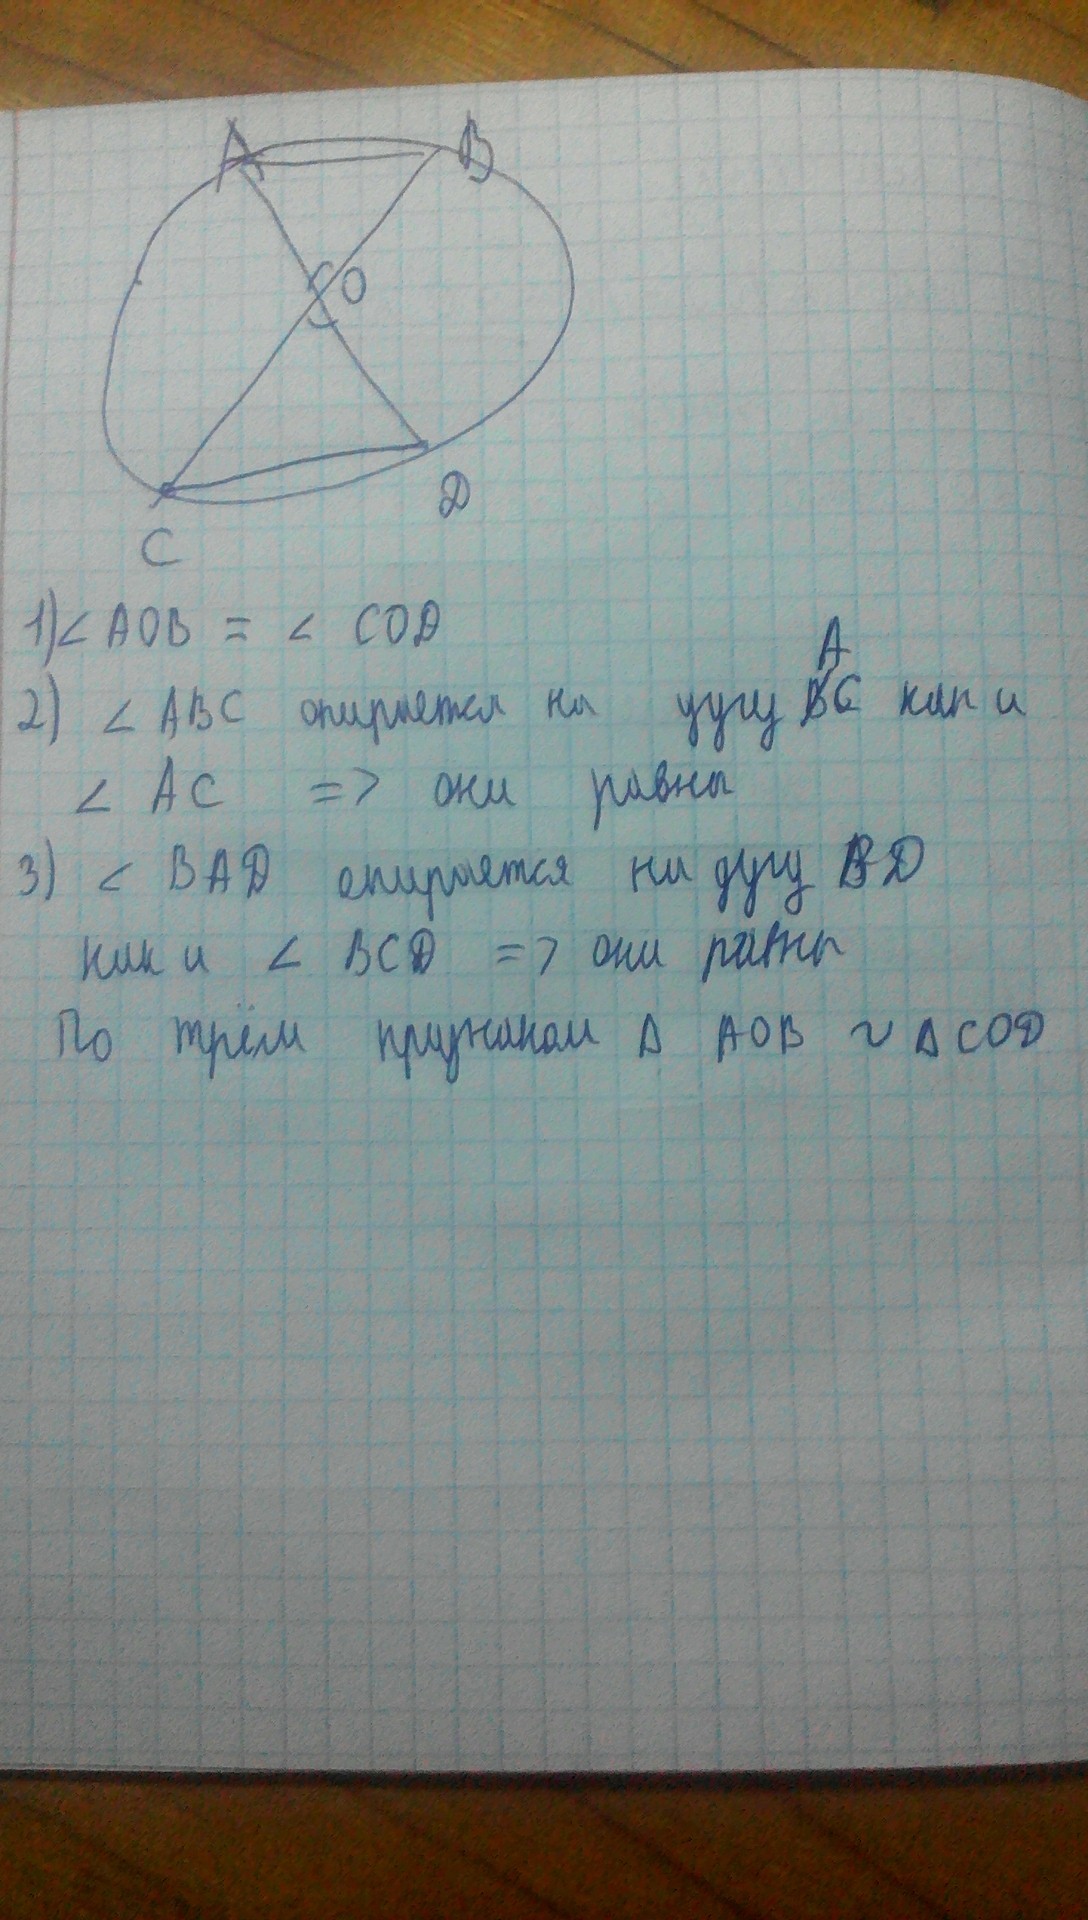 A B
O
C D
1) ∠ AOB = ∠ COD
A
2) ∠ ABC опирается на дугу BC как и
∠ AC => они равны
3) ∠ BAD опирается на дугу BD
как и ∠ BCD => они равны
По трём признакам Δ AOB ~ Δ COD